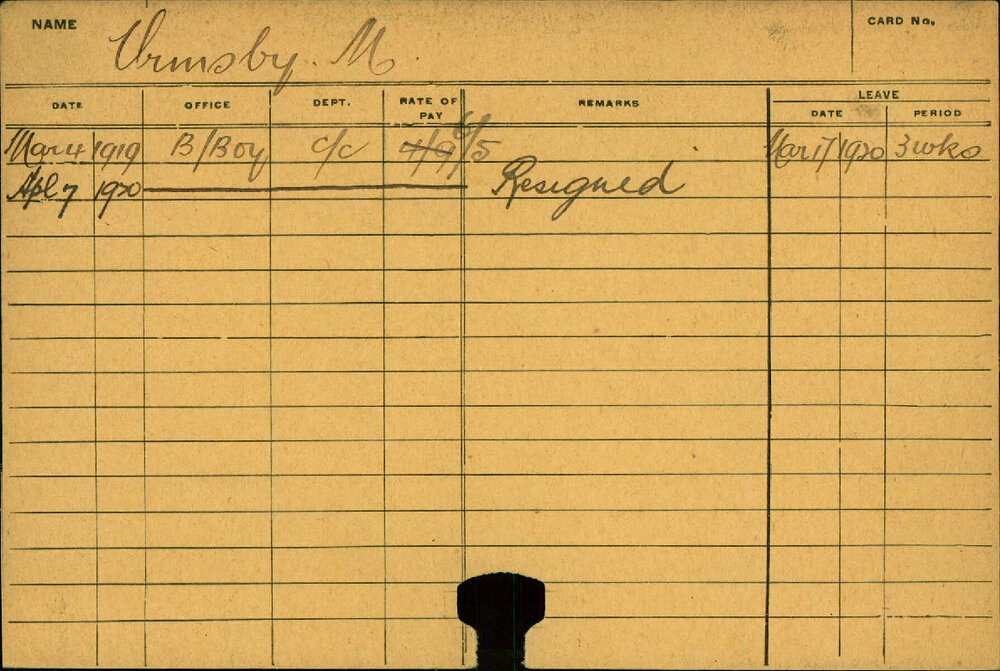 NAME Ormsby. M. CARD No.
DATE OFFICE DEPT. RATE OF PAY REMARKS LEAVE
DATE PERIOD
Mar 4 1919 B/Boy C/C 4/9 6/5 Mar 17 1920 3 wks
Apl 7 1920 Resigned